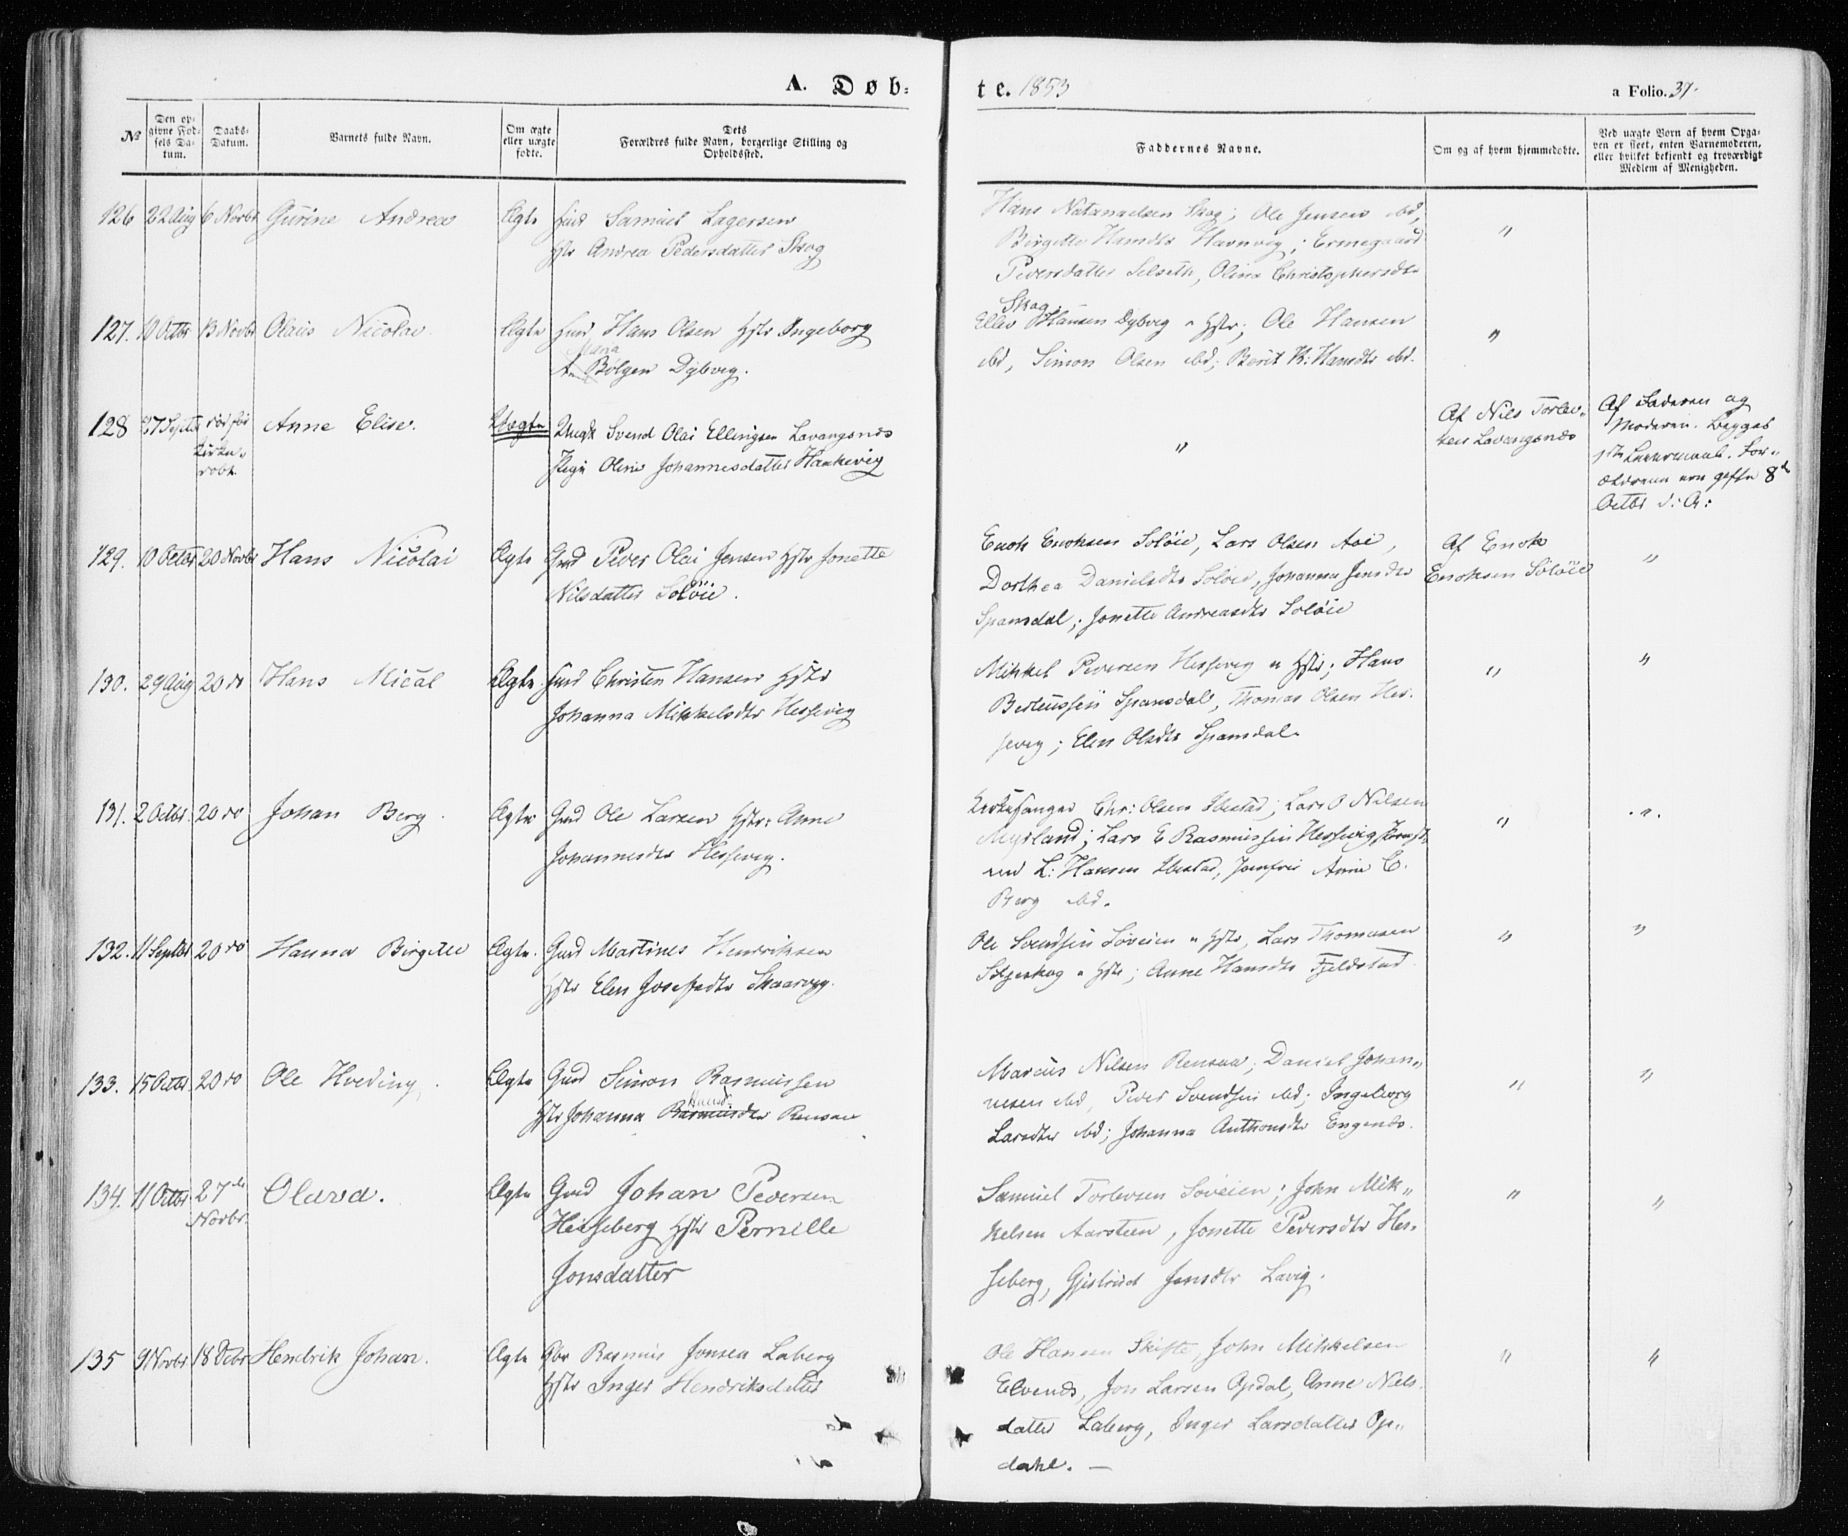 A. Døb-
te. 1853
a Folio. 37.
№
Den op-
givne Fød-
sels Da-
tum.
Daabs-
Datum.
Barnets fulde Navn.
Om ægte
eller uægte
fødte.
Dets
Forældres fulde Navn, borgerlige Stilling og
Opholdssted.
Faddernes Navne.
Om og af hvem hjemmedøbte.
Ved uægte Børn af hvem Opga-
ven er skeet, enten Barnemoderen,
eller hvilket bekjendt og troværdigt
Medlem af Menigheden.
126 22 Aug 6 Novbr Gurine Andrea Ægte Samuel Lagersen
Hstr Andrea Pedersdatter Skog
Hans Natanaelsen Skog; Ole Jensen ibd,
Birgitte Hansdtr Havnvig; Ermegaard
Pedersdatter Selseth, Olina Christophersdtr
Skog.
"
127. 10 Octbr 13 Novbr Olaus Nicolai Ægte Hans Olsen Hstr Ingeborg
Maria
Bølgen Dybvig.
Ellev Hansen Dybvig " Hstr; Ole Hansen
ibd, Simon Olsen ibd; Berit K: Hansdtr ibd.
"
128 27 Septbr død før
Kirke-
døbt
Anne Elise. Uægte Ungk Svend Olai Ellingsen Lavangsnæs
Pige Oline Johannesdatter Haukevig
"
Af Nils Torlev-
sen Lavangsnæs
Af Faderen og
Moderen. Begges
1ste Leiermaal. For-
ældrene ere gifte 8de
Octbr d: A:
129. 10 Octbr 20 Novbr Hans Nicolai Ægte Gmd Peder Olai Jensen Hstr Jonette
Nilsdatter Soløie.
Enok Enoksen Soløie, Lars Olsen Aae,
Dorthea Danielsdtr Soløie, Johanna Jensdtr
Spansdal; Jonette Andreasdtr Soløie
Af Enok
Enoksen Soløie
"
130. 29 Aug 20 do Hans Mical Ægte. Christen Hansen Hstr
Johanna Mikkelsdtr Hessevig
Mikkel Pedersen Hessevig " Hstr; Hans
Berteussen Spansdal, Thomas Olsen Hes-
sevig; Elen Olsdtr Spansdal.
"
"
131. 2 Octbr 20 do Johan Berg. Ægte Gmd Ole Larsen Hstr: Anne
Johannesdtr Hessevig.
Kirkesanger Chr: Olsen Ibestad; Lars O Nilsen
Myrland; Lars E Rasmussen Hessevig,
L: Hansen Ibestad, Jomfrue Anne C.
Berg ibd.
"
"
132. 11 Septbr 20 do Hanna Birgitte Ægte. Gmd Martines Hendriksen
Hstr Elen Josefsdtr Skaarvigg.
Ole Svendsen Søveien " Hstr, Lars Thomasen
" Hstr; Anne Hansdtr Fjeldstad
"
"
133. 15 Octbr 20 do Ole Hveding. Ægte Gmd Simon Rasmussen
Hstr Johanna Rasmusdtr Rensaa
Marcus Nilsen Rensaa; Daniel Johan-
nesen ibd, Peder Svendsen ibd; Ingeborg
Larsdtr ibd; Johanna Anthonsdtr Engenæs.
"
"
134. 11 Octbr 27de
Novbr.
Olava. Ægte Gmd Johan Pedersen
Hesseberg Hstr Pernille
Jonsdatter
Samuel Torlevsen Søveien; John Mik-
kelsen Aarsteen, Jonette Pedersdtr Hes-
seberg, Gjertrud Jensdtr Lavig.
"
"
135 9 Novbr 18 Decbr Hendrik Johan. Ægte Rasmus Jonsen Laberg
Hstr Inger Hendriksdatter
Ole Hansen Skifte, John Mikkelsen
Elvenæs, Jon Larsen Opdal, Anne Niels-
datter Laberg, Inger Larsdatter Op-
dahl. —
"
"